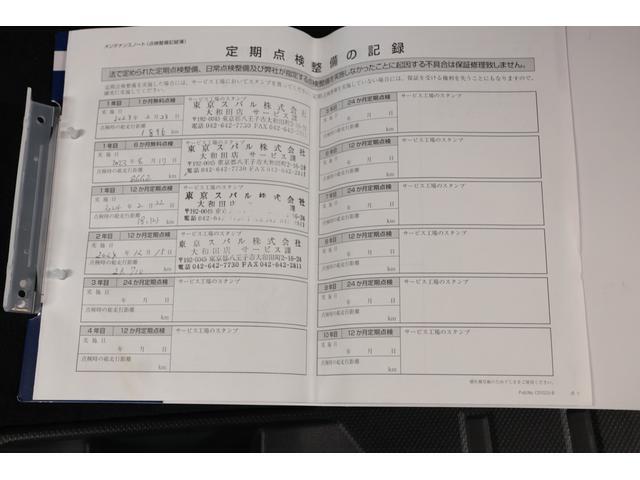 メンテナンスノート（点検整備記録簿）
定期点検整備の記録
法で定められた定期点検整備、日常点検整備及び弊社が指定する点検整備を実施しなかったことに起因する不具合は保証修理致しません。
1年目 1か月無料点検
実施日
2023年2月28日
点検時の総走行距離
1896 km
サービス工場のスタンプ
東京スバル株式会社
大和田店 サービス課
〒192-0045 東京都八王子市大和田町2-16-24
電話 042-642-7730 FAX 042-642-2811
1年目 6か月無料点検
実施日
2023年6月17日
点検時の総走行距離
km
サービス工場のスタンプ
東京スバル株式会社
大和田店 サービス課
〒192-0045 東京都八王子市大和田町2-16-24
電話 042-642-7730 FAX 042-642-2811
1年目 12か月定期点検
実施日
2024年2月22日
点検時の総走行距離
km
サービス工場のスタンプ
東京スバル株式会社
大和田
〒192-0045 東京
電話 042-642
2年目 12か月定期点検
実施日
点検時の総走行距離
km
サービス工場のスタンプ
東京スバル株式会社
大和田店 サービス課
〒192-0045 東京都八王子市大和田町2-16-24
電話 042-642-7730 FAX 042-642-2811
3年目 24か月定期点検
実施日
年 月 日
点検時の総走行距離
km
サービス工場のスタンプ
4年目 12か月定期点検
実施日
年 月 日
点検時の総走行距離
km
サービス工場のスタンプ
24か月定期点検
実施日
年 月 日
点検時の総走行距離
km
サービス工場のスタンプ
12か月定期点検
実施日
年 月 日
点検時の総走行距離
km
サービス工場のスタンプ
24か月定期点検
実施日
年 月 日
点検時の総走行距離
km
サービス工場のスタンプ
12か月定期点検
実施日
年 月 日
点検時の総走行距離
km
サービス工場のスタンプ
9年目 24か月定期点検
実施日
年 月 日
点検時の総走行距離
km
サービス工場のスタンプ
10年目 12か月定期点検
実施日
年 月 日
点検時の総走行距離
km
サービス工場のスタンプ